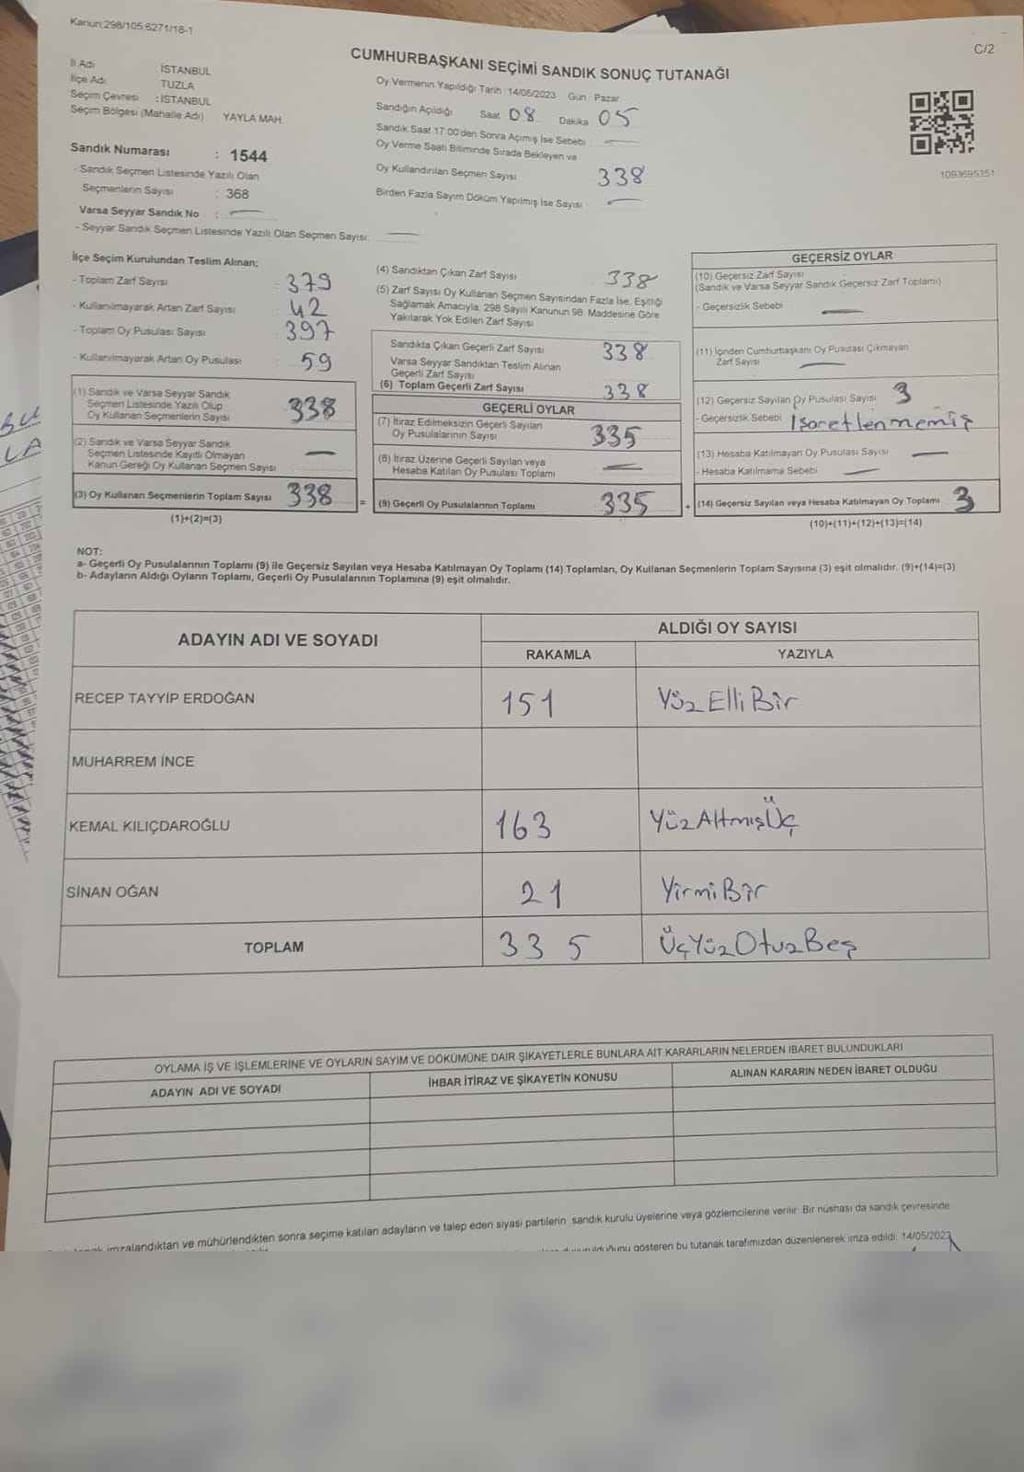 Kanun:298/105 6271/18-1
C/2
CUMHURBAŞKANI SEÇİMİ SANDIK SONUÇ TUTANAĞI
İl Adı : İSTANBUL
İlçe Adı : TUZLA
Seçim Çevresi : İSTANBUL
Seçim Bölgesi (Mahalle Adı) YAYLA MAH.
Sandık Numarası : 1544
- Sandık Seçmen Listesinde Yazılı Olan
Seçmenlerin Sayısı : 368
Varsa Seyyar Sandık No :
- Seyyar Sandık Seçmen Listesinde Yazılı Olan Seçmen Sayısı:
Oy Vermenin Yapıldığı Tarih : 14/05/2023 Gün : Pazar
Sandığın Açıldığı Saat 08 Dakika 05
Sandık Saat 17:00'den Sonra Açılmış İse Sebebi
Oy Verme Saati Bitiminde Sırada Bekleyen ve
Oy Kullandırılan Seçmen Sayısı 338
Birden Fazla Sayım Döküm Yapılmış İse Sayısı
1093695351
İlçe Seçim Kurulundan Teslim Alınan;
- Toplam Zarf Sayısı : 379
- Kullanılmayarak Artan Zarf Sayısı : 42
- Toplam Oy Pusulası Sayısı : 397
- Kullanılmayarak Artan Oy Pusulası : 59
(1) Sandık ve Varsa Seyyar Sandık
Seçmen Listesinde Yazılı Olup
Oy Kullanan Seçmenlerin Sayısı 338
(2) Sandık ve Varsa Seyyar Sandık
Seçmen Listesinde Kayıtlı Olmayan
Kanun Gereği Oy Kullanan Seçmen Sayısı
(3) Oy Kullanan Seçmenlerin Toplam Sayısı 338
(1)+(2)=(3)
(4) Sandıktan Çıkan Zarf Sayısı 338
(5) Zarf Sayısı Oy Kullanan Seçmen Sayısından Fazla İse, Eşitliği
Sağlamak Amacıyla, 298 Sayılı Kanunun 98. Maddesine Göre
Yakılarak Yok Edilen Zarf Sayısı
Sandıkta Çıkan Geçerli Zarf Sayısı 338
Varsa Seyyar Sandıktan Teslim Alınan
Geçerli Zarf Sayısı
(6) Toplam Geçerli Zarf Sayısı 338
GEÇERLİ OYLAR
(7) İtiraz Edilmeksizin Geçerli Sayılan
Oy Pusulalarının Sayısı 335
(8) İtiraz Üzerine Geçerli Sayılan veya
Hesaba Katılan Oy Pusulası Toplamı
= (9) Geçerli Oy Pusulalarının Toplamı 335
GEÇERSİZ OYLAR
(10) Geçersiz Zarf Sayısı
(Sandık ve Varsa Seyyar Sandık Geçersiz Zarf Toplamı)
- Geçersizlik Sebebi
(11) İçinden Cumhurbaşkanı Oy Pusulası Çıkmayan
Zarf Sayısı
(12) Geçersiz Sayılan Oy Pusulası Sayısı 3
- Geçersizlik Sebebi İşaretlenmemiş
(13) Hesaba Katılmayan Oy Pusulası Sayısı
- Hesaba Katılmama Sebebi
+ (14) Geçersiz Sayılan veya Hesaba Katılmayan Oy Toplamı 3
(10)+(11)+(12)+(13)=(14)
NOT:
a- Geçerli Oy Pusulalarının Toplamı (9) ile Geçersiz Sayılan veya Hesaba Katılmayan Oy Toplamı (14) Toplamları, Oy Kullanan Seçmenlerin Toplam Sayısına (3) eşit olmalıdır. (9)+(14)=(3)
b- Adayların Aldığı Oyların Toplamı, Geçerli Oy Pusulalarının Toplamına (9) eşit olmalıdır.
ADAYIN ADI VE SOYADI
ALDIĞI OY SAYISI
RAKAMLA YAZIYLA
RECEP TAYYİP ERDOĞAN 151 YüzElliBir
MUHARREM İNCE
KEMAL KILIÇDAROĞLU 163 YüzAltmışÜç
SİNAN OĞAN 21 YirmiBir
TOPLAM 335 ÜçYüzOtuzBeş
OYLAMA İŞ VE İŞLEMLERİNE VE OYLARIN SAYIM VE DÖKÜMÜNE DAİR ŞİKAYETLERLE BUNLARA AİT KARARLARIN NELERDEN İBARET BULUNDUKLARI
ADAYIN ADI VE SOYADI İHBAR İTİRAZ VE ŞİKAYETİN KONUSU ALINAN KARARIN NEDEN İBARET OLDUĞU
imzalandıktan ve mühürlendikten sonra seçime katılan adayların ve talep eden siyasi partilerin sandık kurulu üyelerine veya gözlemcilerine verilir. Bir nüshası da sandık çevresinde
gösteren bu tutanak tarafımızdan düzenlenerek imza edildi. 14/05/2023